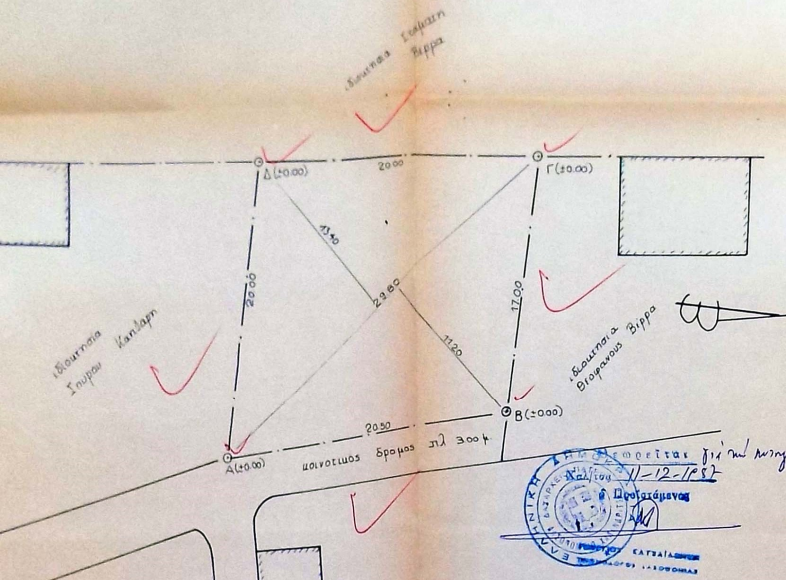 ιδιοκτησια Σταματη
Βιρρα
Δ(±0.00)
20.00
Γ(±0.00)
13.40
20.00
29.80
17.00
11.20
ιδιοκτησια
Σπυρου
ιδιοκτησια
Θεοφανους Βιρρα
Β(±0.00)
20.50
Α(±0.00)
κοινοτικος δρομος πλ 3.00 μ.
Θεωρείται για την
11-12-1987
Ο Προϊστάμενος
ΕΛΛΗΝΙΚΗ ΔΗΜΟΚΡΑΤΙΑ